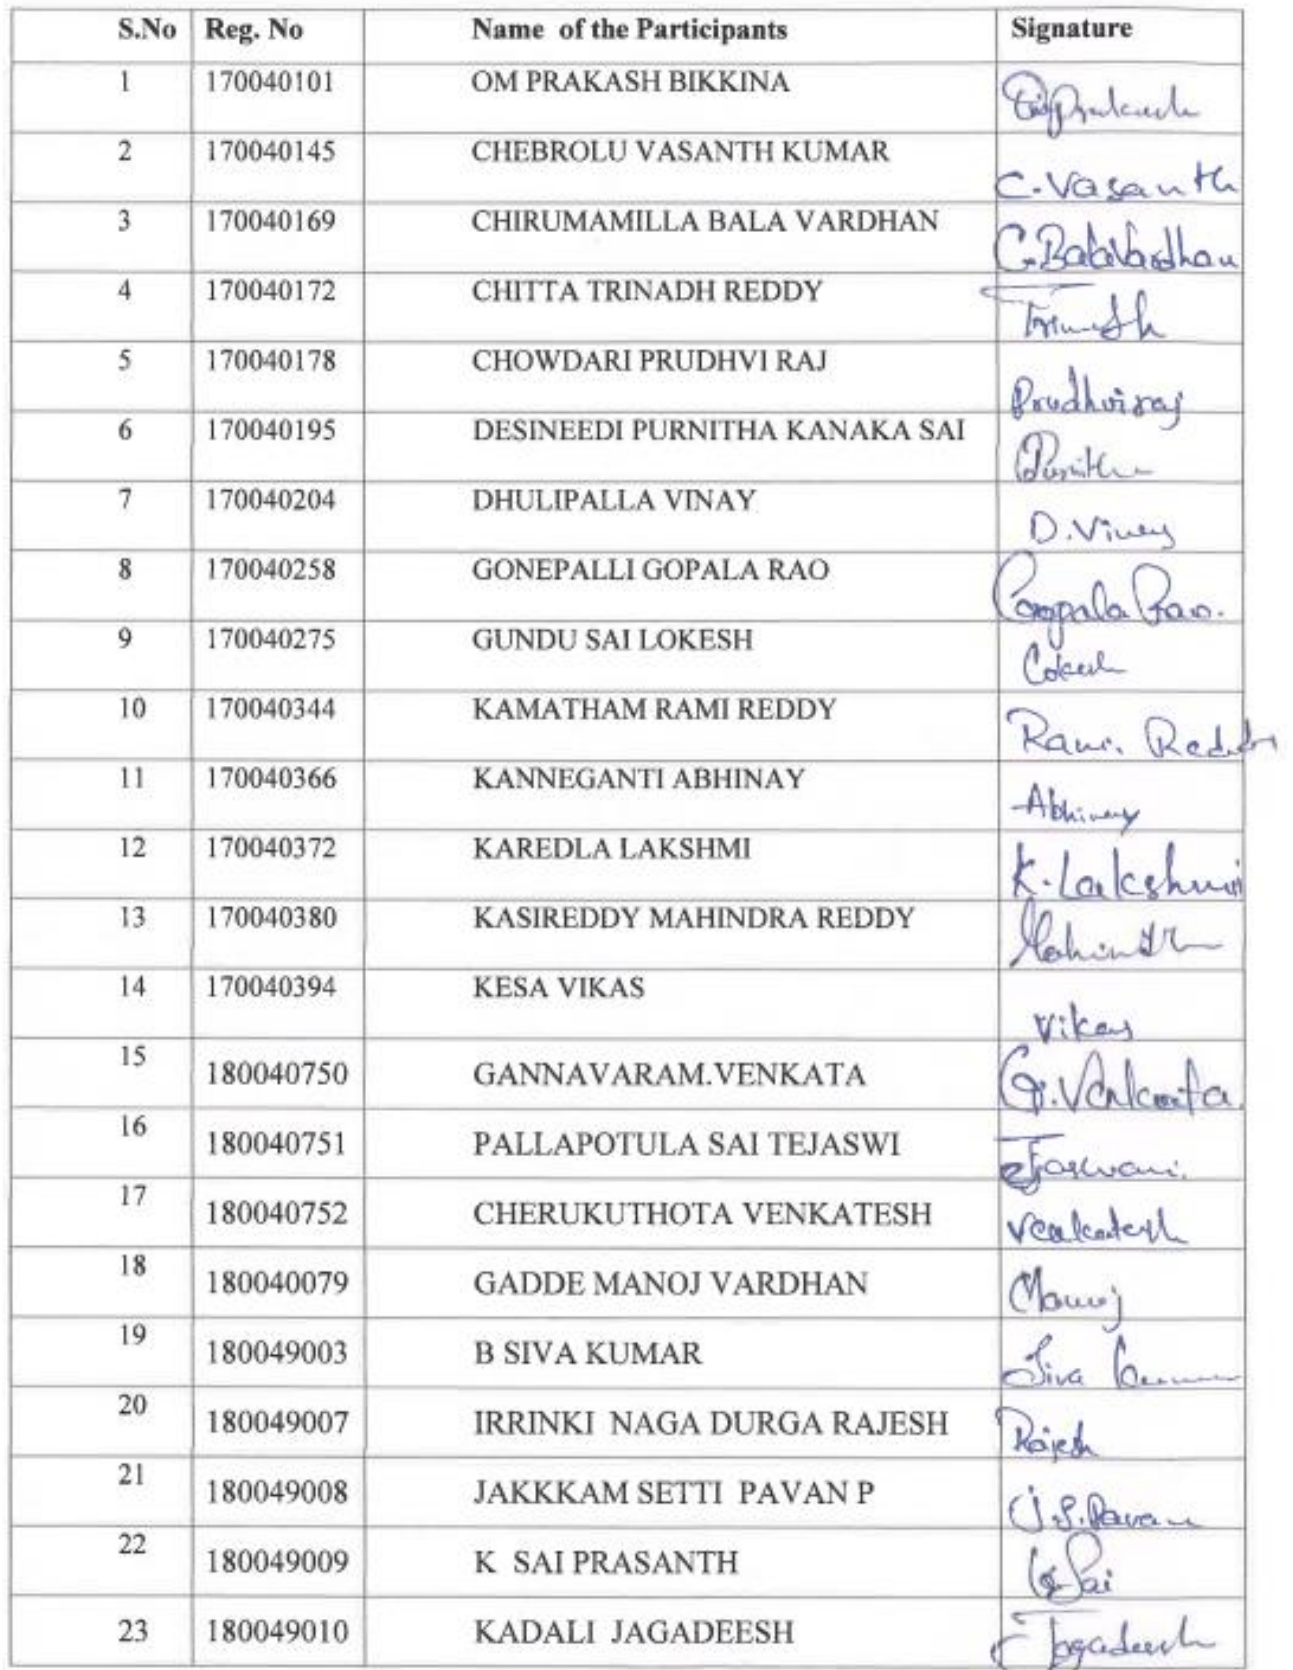 S.No Reg. No Name of the Participants Signature
1 170040101 OM PRAKASH BIKKINA Omprakash
2 170040145 CHEBROLU VASANTH KUMAR C. Vasanth
3 170040169 CHIRUMAMILLA BALA VARDHAN C. BalaVardhan
4 170040172 CHITTA TRINADH REDDY Trinadh
5 170040178 CHOWDARI PRUDHVI RAJ Prudhviraj
6 170040195 DESINEEDI PURNITHA KANAKA SAI Purnitha
7 170040204 DHULIPALLA VINAY D. Vinay
8 170040258 GONEPALLI GOPALA RAO Gopala Rao.
9 170040275 GUNDU SAI LOKESH Lokesh
10 170040344 KAMATHAM RAMI REDDY Rami. Reddy
11 170040366 KANNEGANTI ABHINAY Abhinay
12 170040372 KAREDLA LAKSHMI K. Lakshmi
13 170040380 KASIREDDY MAHINDRA REDDY Mahindra
14 170040394 KESA VIKAS Vikas
15 180040750 GANNAVARAM.VENKATA G. Venkata.
16 180040751 PALLAPOTULA SAI TEJASWI
17 180040752 CHERUKUTHOTA VENKATESH Venkatesh
18 180040079 GADDE MANOJ VARDHAN Manoj
19 180049003 B SIVA KUMAR Siva Kumar
20 180049007 IRRINKI NAGA DURGA RAJESH Rajesh
21 180049008 JAKKKAM SETTI PAVAN P J.S. Pavan
22 180049009 K SAI PRASANTH K. Sai
23 180049010 KADALI JAGADEESH Jagadeesh